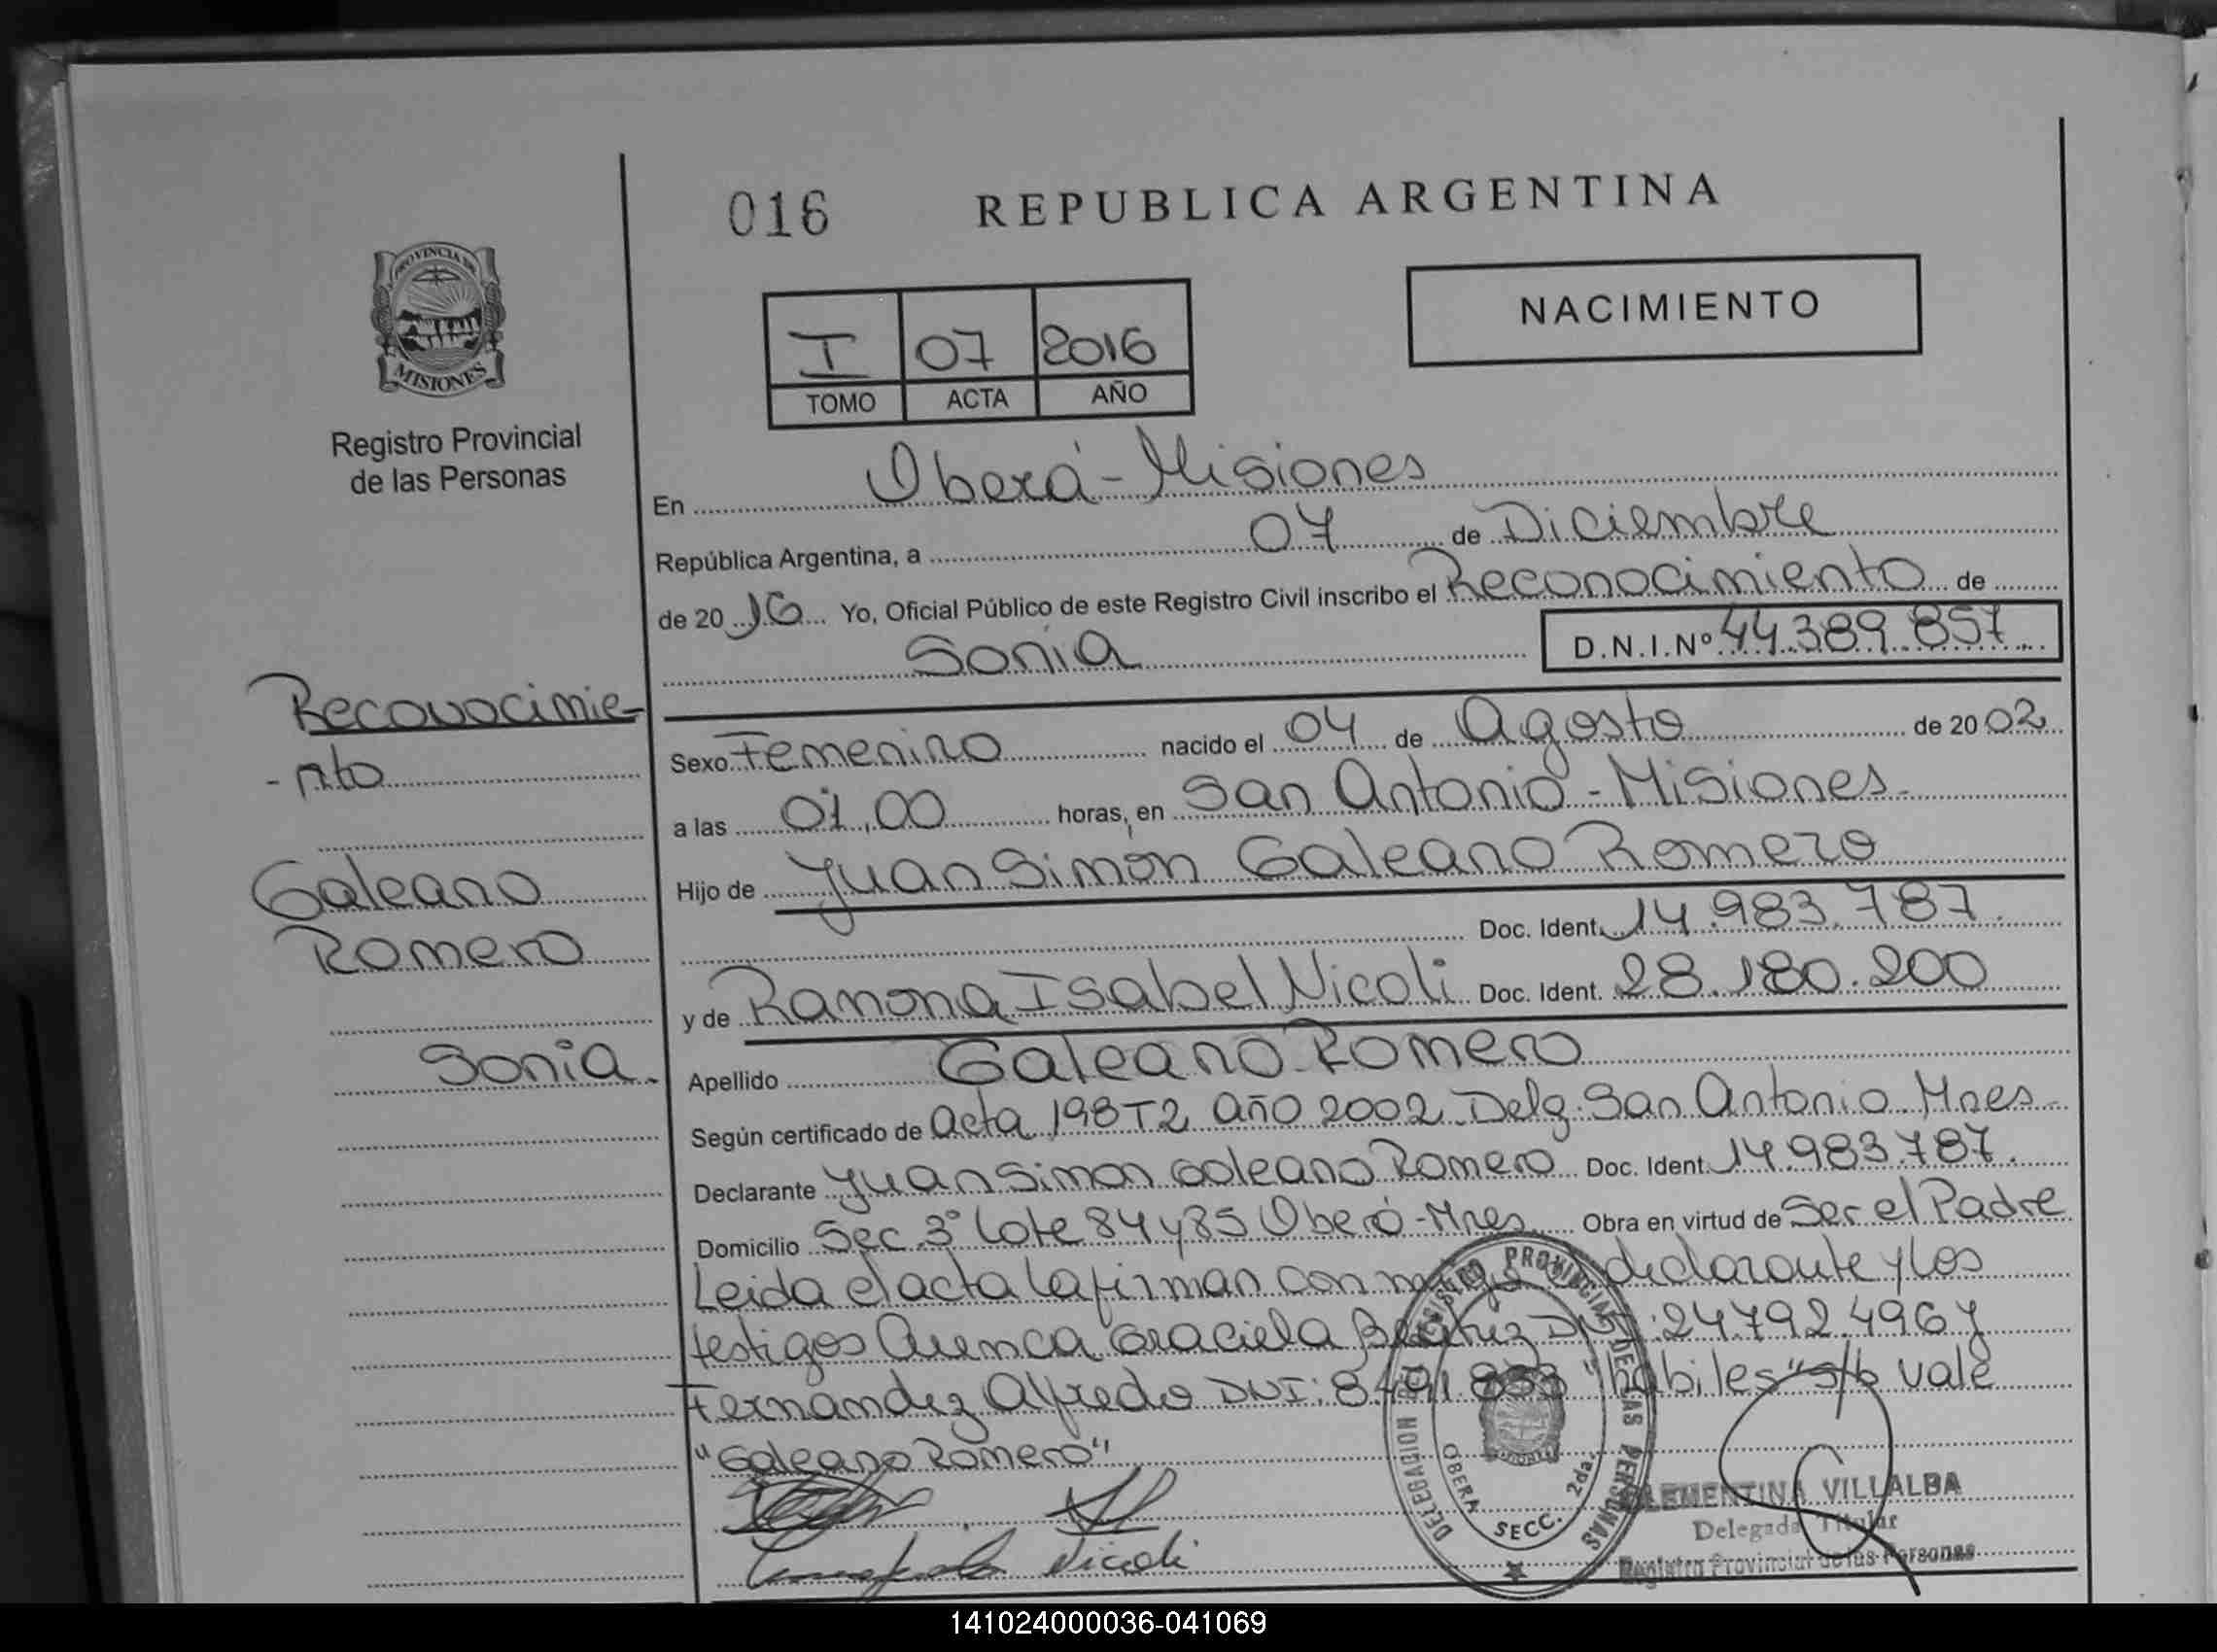 016 REPUBLICA ARGENTINA
PROVINCIA DE
MISIONES
Registro Provincial
de las Personas
NACIMIENTO
I 07 2016
TOMO ACTA AÑO
En Oberá - Misiones
República Argentina, a 07 de Diciembre
de 20 16 Yo, Oficial Público de este Registro Civil inscribo el Reconocimiento de
Sonia D.N.I.Nº 44.389.857
Reconocimie-
-nto
Galeano
Romero
Sonia.
Sexo Femenino nacido el 04 de Agosto de 20 02
a las 01,00 horas, en San Antonio - Misiones -
Hijo de Juan Simón Galeano Romero
Doc. Ident. 14.983.787.
y de Ramona Isabel Nicoli Doc. Ident. 28.180.200
Apellido Galeano Romero
Según certificado de Acta 198 T2 Año 2002 Delg. San Antonio Mnes -
Declarante Juan Simon Galeano Romero Doc. Ident. 14.983.787.
Domicilio Sec. 3º Lote 84 y 85 Oberá - Mnes Obra en virtud de Ser el Padre
Leida el acta la firman con declarante y los
testigos Cuenca Graciela Beatriz DNI: 24.792.496 y
Fernandez Alfredo DNI: 8.491.853 "habiles" s/b vale
"Galeano Romero"
Nicoli
DELEGACION DEL REGISTRO PROVINCIAL DE LAS PERSONAS
OBERA SECC. 2da.
CLEMENTINA VILLALBA
Delegada Titular
Registro Provincial de las Personas
141024000036-041069